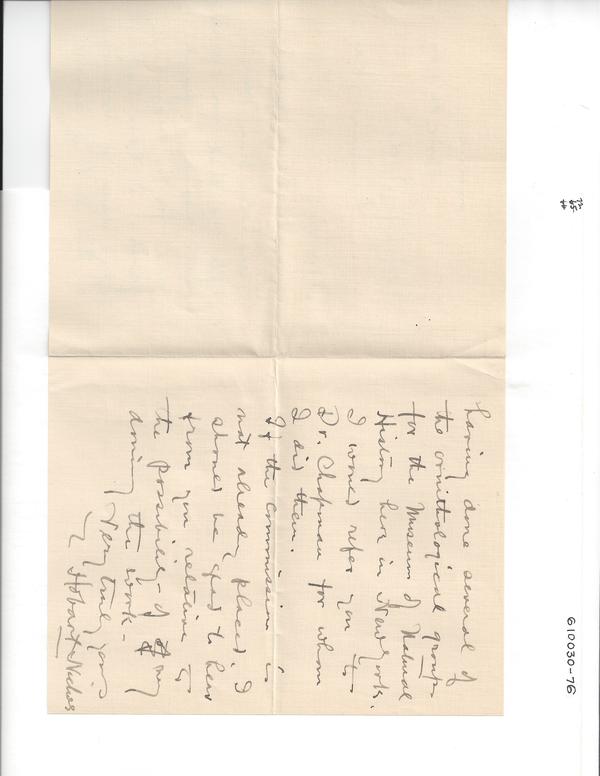 having done several of
the ornithological groups
for the Museum of Natural
History here in New York.
I would refer you to
Dr. Chapman for whom
I did them.
If the commission is
not already placed, I
should be glad to hear
from you relative to
the possibility of my
doing the work -
Very truly yours
Hobart Nichols
610030-76